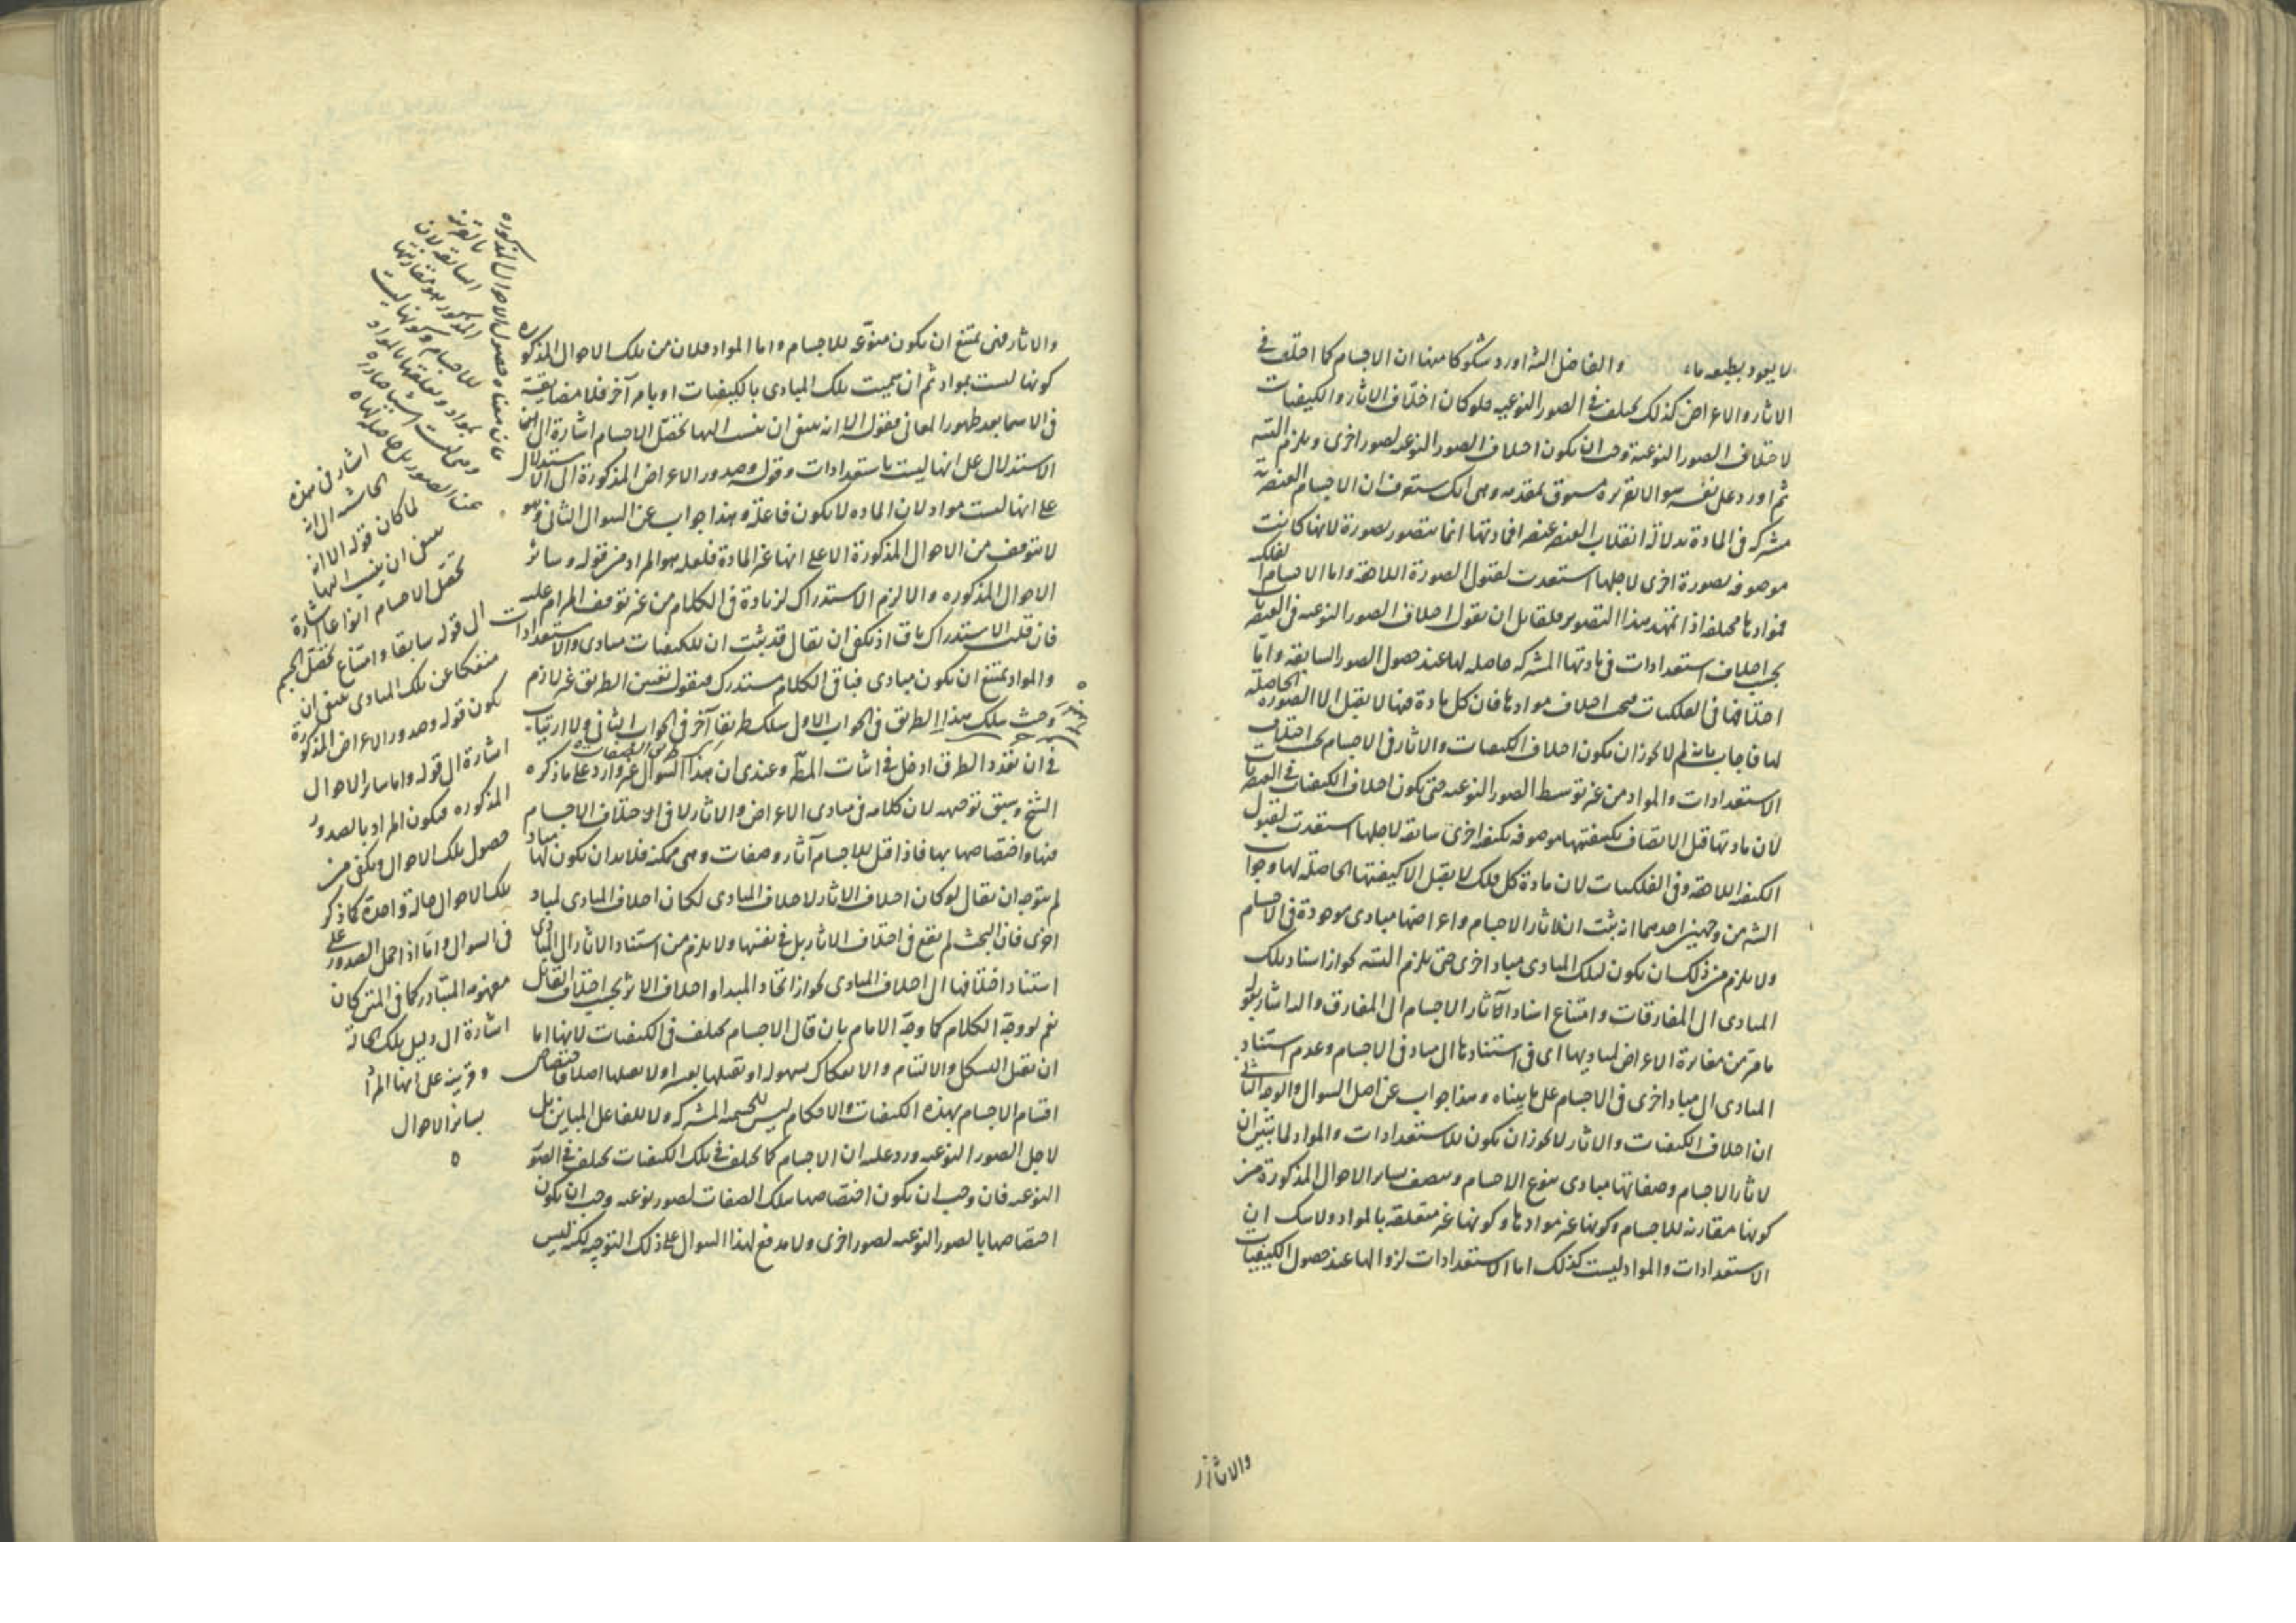 لا يعود بطبعه ماء والفاضل الش اورد شكوكا منها ان الاجسام كما اختلف في
الاثار والاعراض كذلك يختلف في الصور النوعيه فلو كان اختلاف الاثار والكيفيات
لاختلاف الصور النوعية وجب ان يكون اختلاف الصور النوعيه لصور اخرى ويلزم التسه
ثم اورد على نفسه سوالا تقريره مسبوق بمقدمه وهى انك ستعرف ان الاجسام العنصرية
مشتركه في المادة بدلالة انقلاب العنصر عنصرا فمادتها انما تتصور بصورة لانها كانت
موصوفه بصورة اخرى لاجلها استعدت لقبول الصورة اللاحقة واما الاجسام الفلكية
فموادها مختلفه اذا تمهد هذا التصوير فلقائل ان يقول اختلاف الصور النوعيه في العنصريات
بحسب اختلاف استعدادات في مادتها المشتركه حاصله لها عند حصول الصور السابقه واما
اختلافها في الفلكيات فبحسب اختلاف موادها فان كل مادة منها لا يقبل الا الصوره الحاصلة
لها فاجاب بانه لم لا يجوز ان يكون اختلاف الكيفيات والاثار في الاجسام بحسب اختلاف
الاستعدادات والمواد من غير توسط الصور النوعيه حتى يكون اختلاف الكيفيات في العنصريات
لان مادتها قبل الاتصاف بكيفيتها موصوفه بكيفيه اخرى سابقه لاجلها استعدت لقبول
الكيفيه اللاحقه وفي الفلكيات لان مادة كل فلك لا يقبل الا كيفيتها الحاصله لها وجواب
الش من وجهين احدهما انه ثبت ان لاثار الاجسام واعراضها مبادى موجودة في الاجسام
ولا يلزم من ذلك ان يكون لتلك المبادى مباد اخرى حتى يلزم التسه لجواز اسناد تلك
المبادى الى المفارقات وامتناع اسناد الآثار الاجسام الى المفارق والى هذا اشار بقوله
ما مر من مغايرة الاعراض لمباديها اى في استنادها الى مباد في الاجسام وعدم استناد
المبادى الى مباد اخرى في الاجسام على ما بيناه وهذا جواب عن اصل السوال والوجه الثانى
ان اختلاف الكيفيات والاثار لا يجوز ان يكون للاستعدادات والمواد لما تبين ان
لاثار الاجسام وصفاتها مبادى تنوع الاجسام وتتصف بساير الاحوال المذكورة من
كونها مقارنه للاجسام وكونها غير موادها وكونها غير متعلقه بالمواد ولا شك ان
الاستعدادات والمواد ليست كذلك اما الاستعدادات لزوالها عند حصول الكيفيات
والاثار
والاثار فتى تمتنع ان يكون منوعه للاجسام واما المواد فلان من تلك الاحوال المذكوره
كونها ليست بمواد ثم ان سميت تلك المبادى بالكيفيات او بامر آخر فلا مضايقة
في الاسما بعد ظهور المعانى فقوله الا انه ينبغى ان ينسب اليها تحصّل الاجسام اشارة الى
الاستدلال على انها ليست باستعدادات وقوله وصدور الاعراض المذكورة الى الاستدلال
على انها ليست مواد لان الماده لا يكون فاعلة وهذا جواب عن السوال الثانى وهو
لا يتوقف من الاحوال المذكورة الا على انها غير المادة فلعله هو المراد من قوله وسائر
الاحوال المذكوره والا لزم الاستدراك لزيادة في الكلام من غير توقف المرام عليه
فان قلت الاستدراك باق اذ يكفى ان يقال قد يثبت ان للكيفيات مبادى والاستعدادات
والمواد تمتنع ان يكون مبادى فباقى الكلام مستدرك فنقول تعيين الطريق غير لازم
وحيث سلك هذا الطريق في الجواب الاول سلك طريقا آخر في الجواب الثانى ولا ارتياب
في ان تعدد الطرق ادخل في اثبات المط وعندى ان هذا السوال غير وارد على ما ذكره
الشيخ وسبق توجيهه لان كلامه في مبادى الاعراض والاثار لا في اختلاف الاجسام
فيها واختصاصها بها فاذا قيل للاجسام آثار وصفات وهى ممكنه فلا بد ان يكون لها مباد
لم يتوجه ان يقال لو كان اختلاف الاثار لاختلاف المبادى لكان اختلاف المبادى لمباد
اخرى فان البحث لم يقع في اختلاف الاثار بل في نفسها ولا يلزم من استناد الاثار الى المبادى
استناد اختلافها الى اختلاف المبادى لجواز اتحاد المبدا واختلاف الاثر بحسب اختلاف القابل
نعم لو وجّه الكلام كما وجّه الامام بان قال الاجسام يختلف في الكيفيات لانها اما
ان يقبل التشكل والالتيام والانفكاك بسهوله او تقبلها بعسر اولا تقبلها اصلا فاختصاص
اقسام الاجسام بهذه الكيفيات والاحكام ليس للجسميه المشتركه ولا للفاعل المباين بل
لاجل الصور النوعيه ورد عليه ان الاجسام كما يختلف في تلك الكيفيات يختلف في الصور
النوعيه فان وجب ان يكون اختصاصها بتلك الصفات لصور نوعيه وجب ان يكون
اختصاصها بالصور النوعيه لصور اخرى ولا مدفع لهذا السوال على ذلك التوجيه لكنه ليس
فان معناه حصول الاحوال المذكوره
السابقه لان
المذكور هو مقارنتها
للاجسام وكونها ليست
بمواد وتعلقها بالمواد
وهى ليست اشيا صادره
عن الصور بل حاصله لها
اشار في هذه
الحاشيه الى انه
لما كان قوله الا انه
ينبغى ان ينسب اليها
تحصّل الاجسام انواعا اشارة
الى قوله سابقا وامتناع تحصّل الجسم
منفكا عن تلك المبادى ينبغى ان
يكون قوله وصدور الاعراض المذكورة
اشارة الى قوله واما ساير الاحوال
المذكوره فيكون المراد بالصدور
حصول تلك الاحوال ويكفى من
تلك الاحوال حالة واحدة كما ذكر
في السوال واما اذا حمل الصدور على
مفهومه المتبادر كما في المتن كان
اشارة الى دليل تلك الحالة
وقرينة على انها المراد
بسائر الاحوال